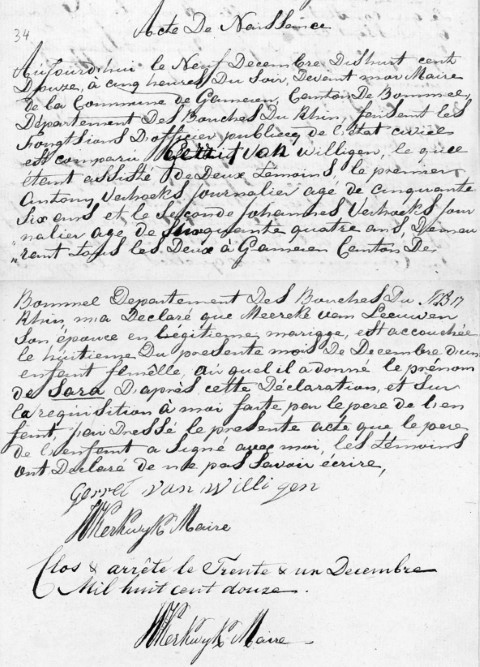 34
Acte De Naissance
Aujourd'hui le Neuf Decembre Dishuit cent
Douze, à cinq heures Du Soir, Devant moi Maire
de la Commune de Gameren Canton De Bommel,
Département Des Bouches Du Rhin, faisent les
fongtsions D'officier publicq de l'état civiel
est comparu Gerrit van Willigen, le quel
étant assisté de Deux Temoins, le premier
Antony Verhoeks Journalier agé de cinquante
Six ans et le Seconde Johannes Verhoeks Jour
nalier age de cinquante quatre ans, Demeu
rant tous les Deux à Gameren Canton De
Bommel Departement Des Bouches Du
Rhin, m'a Declaré que Meereke van Leeuwen
Son épouce en Légitieme mariage, est accouchée
le huitieme Du presente mois De Decembre d'un
enfant femelle, au quel il a donné le prénom
de Sara D'après cette Déclaration, et Sur
la requisition à moi faite par le pere de l'en
fent, j'ai Dressé le presente acte que le pere
de l'enfent a Signé avec moi, les Temoins
ont Declaré de ne pas Savoir écrire,
Gerret van willigen
HKerkwyk Maire
Clos & arrêté le Trente & un Decembre
Mil huit cent douze.
HKerkwyk Maire